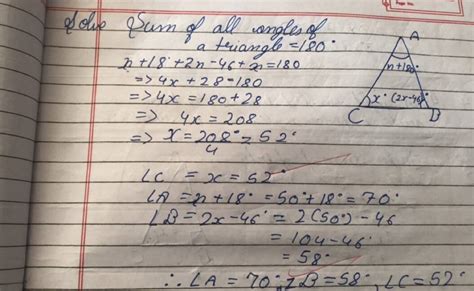 Solve Sum of all angles of
a triangle = 180°
x+18°+2x-46+x=180
=> 4x+28=180
=> 4x = 180+28
=> 4x = 208
=> x = 208°/4 = 52°
A
x+18°
x° (2x-46)°
C B
∠C = x = 52°
∠A = x+18° = 50°+18° = 70°
∠B = 2x-46° = 2(50°)-46
= 104-46°
= 58°
∴ ∠A = 70°, ∠B = 58°, ∠C = 52°